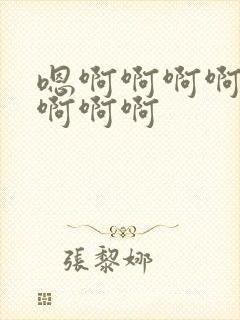 嗯啊啊啊啊
啊啊啊
張黎娜